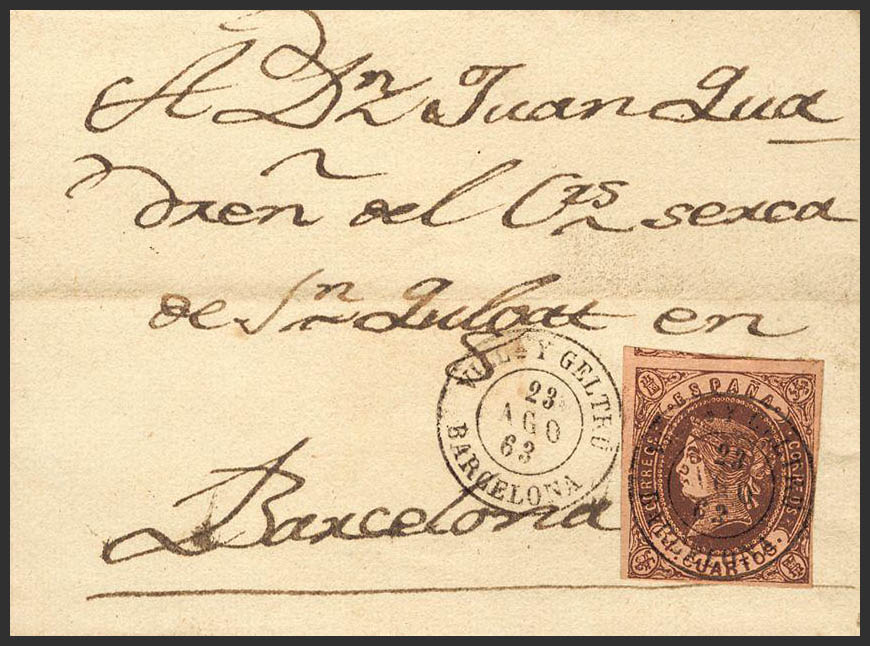 A Dn Juan Qua
dren del Crs serca
de Sn Qulgat en
Barcelona
VILLAY GELTRU
23
AGO
63
BARCELONA
ESPAÑA
CORREOS
CUARTOS.
23
63